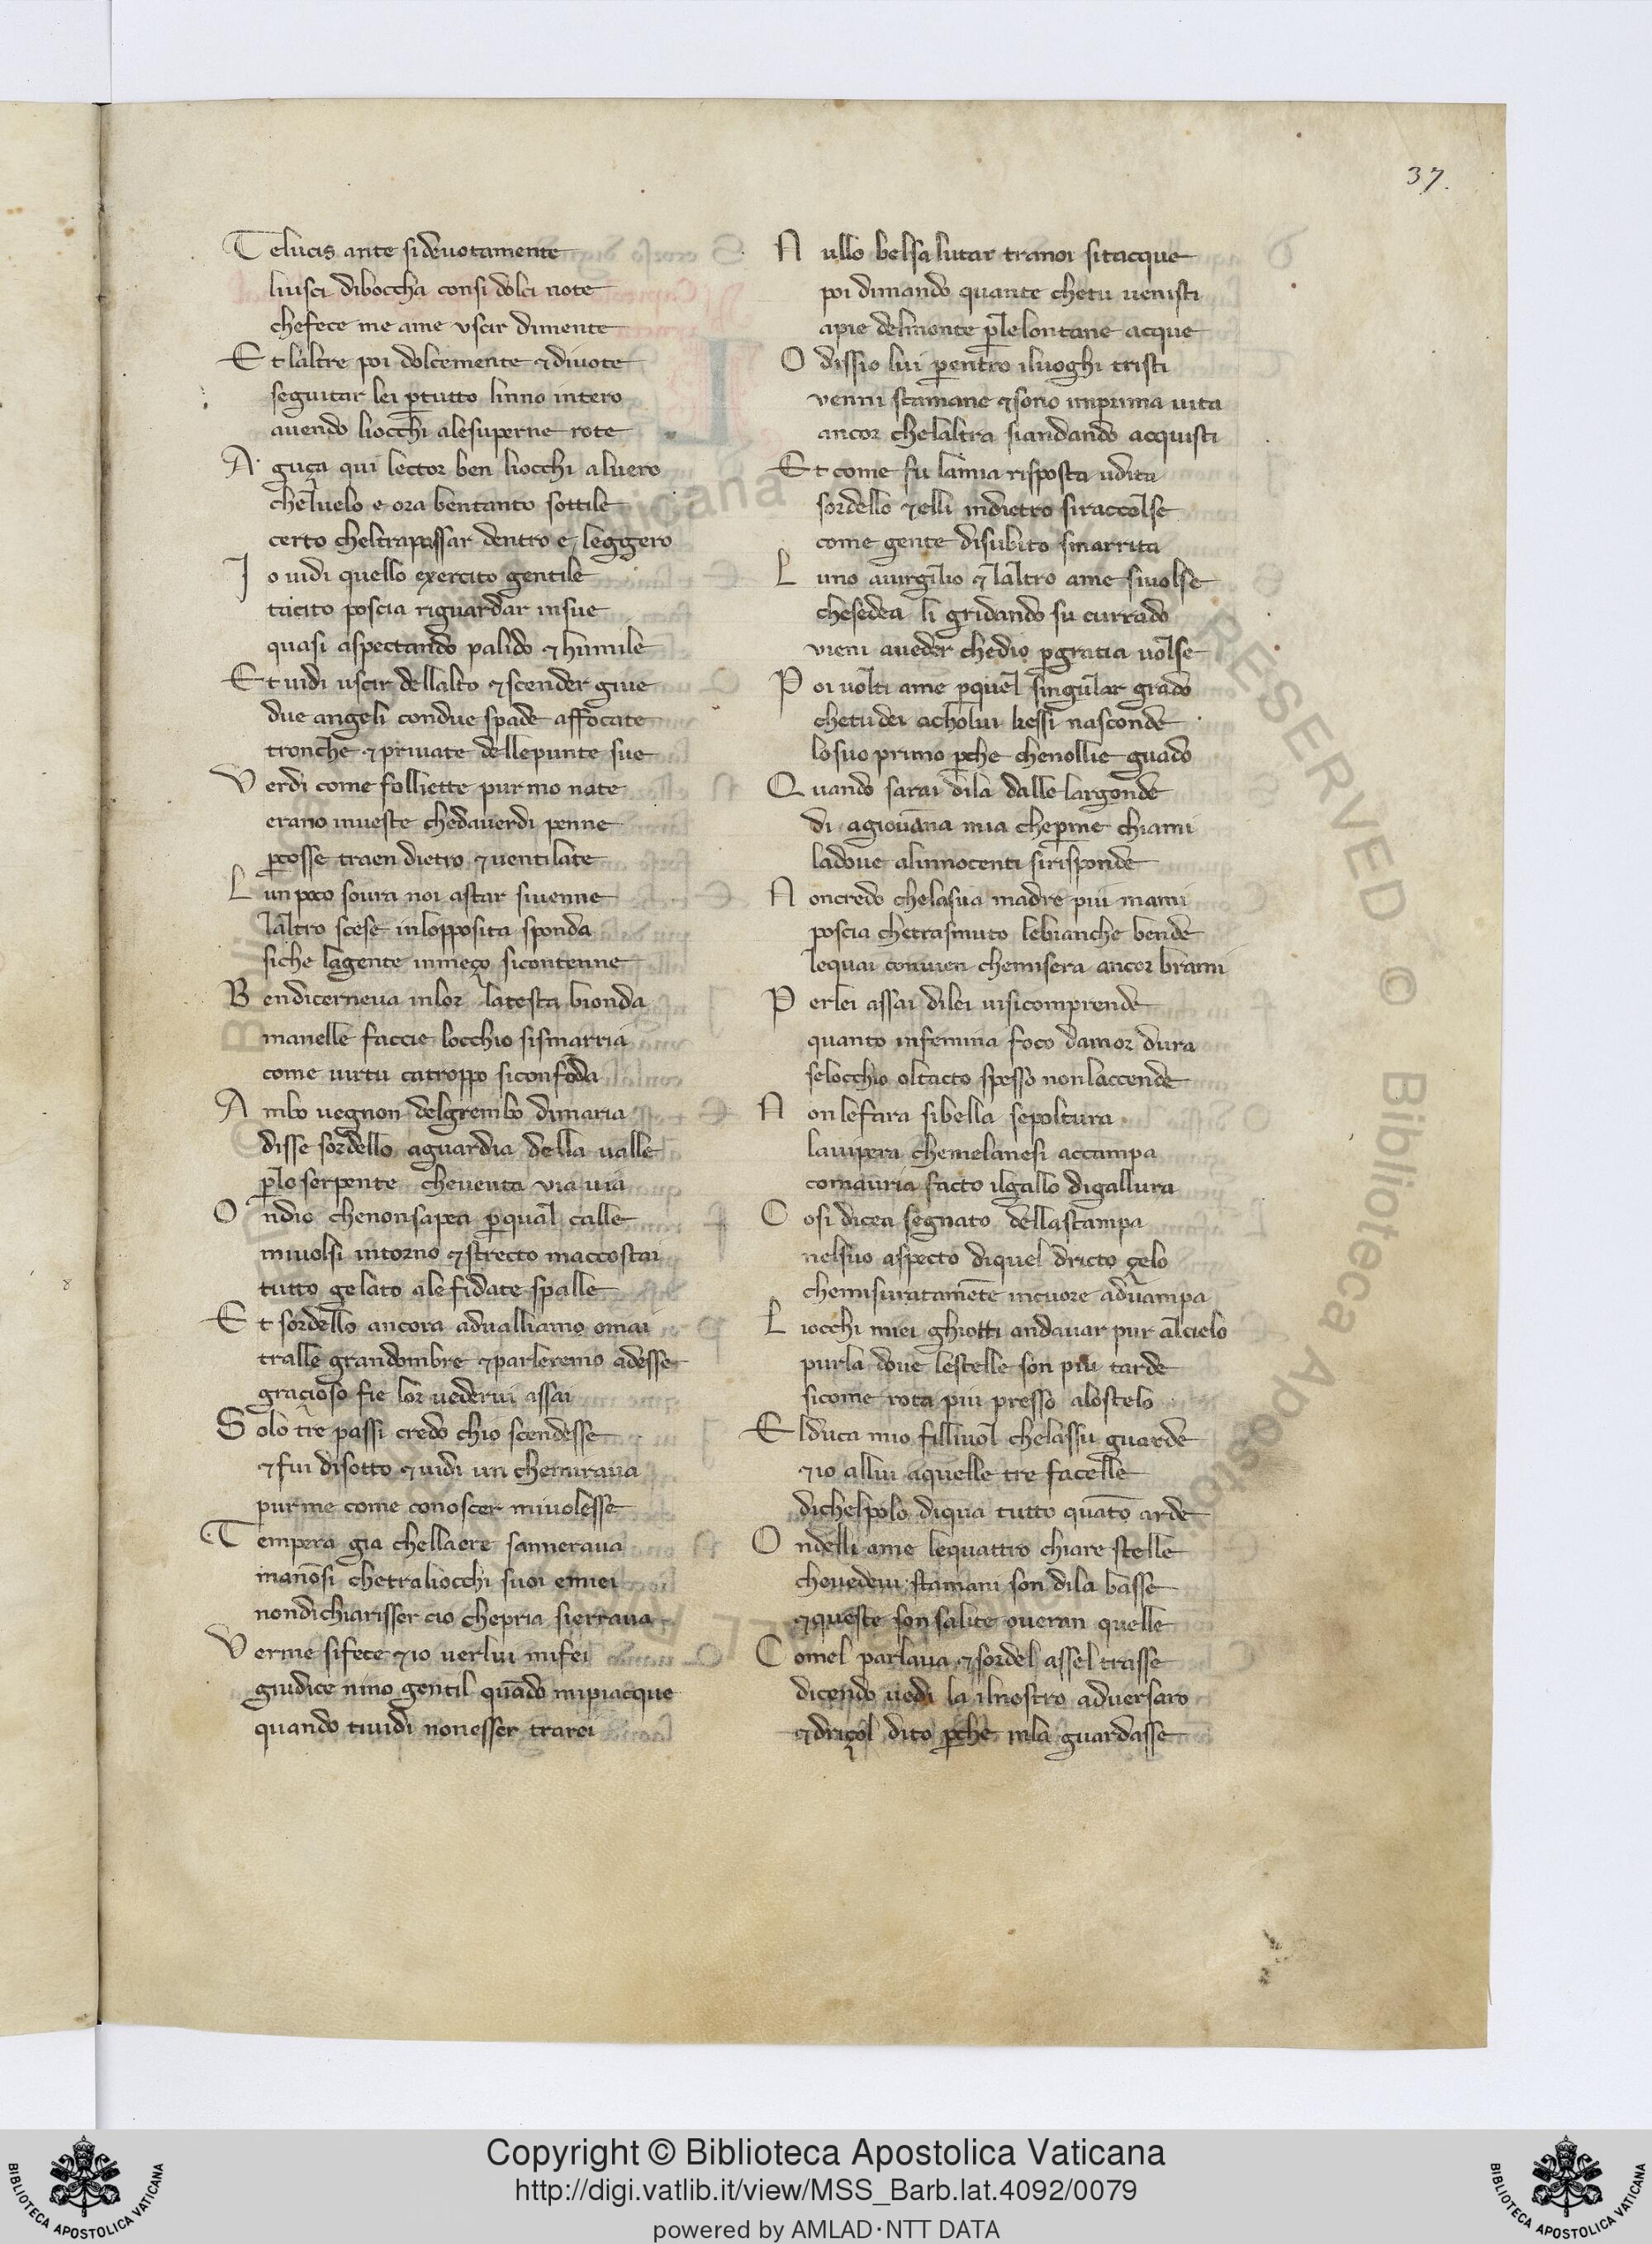 37.
Te lucis ante sidevotamente
liusci diboccha consi dolci note
chefece me ame uscir dimente
Et laltre poi dolcemente ⁊ divote
seguitar lei ꝑtutto linno intero
avendo liocchi alesuperne rote
Aguça qui lector ben liocchi aluero
chelvelo e ora bentanto sottile
certo cheltrapassar dentro e leggero
Io vidi quello exercito gentile
tacito poscia riguardar insue
quasi aspectando palido ⁊ humile
Et vidi uscir dellalto ⁊ scender giue
due angeli condue spade affocate
tronche ⁊ private dellepunte sue
Verdi come folliette pur mo nate
erano investe chedaverdi penne
ꝑcosse traen dietro ⁊ ventilate
Lun poco sovra noi astar sivenne
laltro scese inlopposita sponda
siche lagente inmeço sicontenne
Ben dicerneva inlor latesta bionda
manelle faccie locchio sismarria
come virtu catroppo siconfōda
Ambo vegnon delgrembo dimaria
disse sordello aguardia della valle
ꝑlo serpente cheventa via via
Ondio chenonsapea ꝑqual calle
mivolsi intorno ⁊ strecto maccostai
tutto gelato ale fidate spalle
Et sordello ancora advalliamo omai
tralle grandombre ⁊ parleremo adesse
gracioso fie lor vedervi assai
Solo tre passi credo chio scendesse
⁊ fui disotto ⁊ vidi un chemirava
pur me come conoscer mivolesse
Tempera gia chellaere sannerava
manōsi chetraliocchi suoi emiei
nondichiarisser cio chepria sierrava
Verme sifece ⁊ io verlui mifei
giudice nino gentil quādo mipiacque
quando tividi nonesser trarei
Nullo belsalutar tranoi sitacque
poi dimando quante chetu venisti
apie delmonte ꝑlelontane acque
O dissio lui ꝑentro iluoghi tristi
venni stamane ⁊ sono imprima vita
ancor chelaltra siandando acquisti
Et come fu lamia risposta udita
sordello ⁊ elli indietro siraccolse
come gente disubito smarrita
Luno avirgilio ⁊ laltro ame sivolse
chesedea li gridando su currado
vieni aveder chedio ꝑgratia volse
Poi volti ame ꝑquel singular grado
chetudei acholui kessi nasconde
losuo primo ꝑche chenollie guado
Quando sarai dila dalle largonde
di agiovāna mia cheꝑme chiami
ladove alinnocenti sirisponde
Non credo chelasua madre piu mami
poscia chetrasmuto lebianche bende
lequai convien chemisera ancor brami
Perlei assai dilei visicomprende
quanto infemina foco damor dura
selocchio oltacto spesso nonlaccende
Non lefara sibella sepoltura
lavipera chemelanesi accampa
comavria facto ilgallo digallura
Cosi dicea segnato dellastampa
nelsuo aspecto diquel dricto çelo
chemisuratamēte incuore advampa
Liocchi miei ghiotti andavar pur alcielo
purla dove lestelle son piu tarde
sicome rota piu presso alostelo
Elduca mio fillivol chelassu guarde
⁊ io allui aquelle tre facelle
dichelpolo diqua tutto quāto arde
Ondelli ame lequattro chiare stelle
chevedevi stamani son dila basse
⁊ queste son salite overan quelle
Comel parlava ⁊ sordel assel trasse
dicendo vedi la ilnostro adversaro
⁊ driçol dito ꝑche inla guardasse
RESERVED © Biblioteca Apostolica Vaticana
BIBLIOTECA APOSTOLICA VATICANA
Copyright © Biblioteca Apostolica Vaticana
http://digi.vatlib.it/view/MSS_Barb.lat.4092/0079
powered by AMLAD·NTT DATA
BIBLIOTECA APOSTOLICA VATICANA